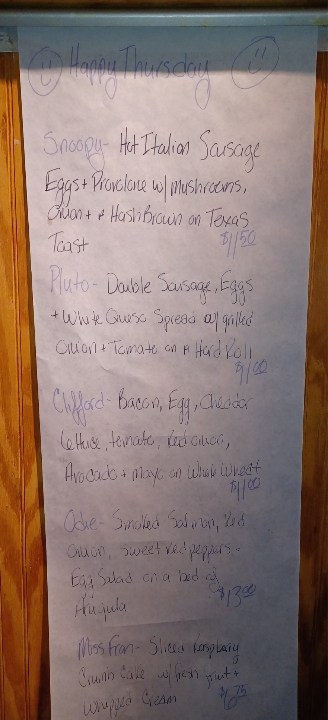 Happy Thursday
Snoopy- Hot Italian Sausage
Eggs + Provolone w/ mushrooms,
Onion + a HashBrown on Texas
Toast $11.50
Pluto- Double Sausage, Eggs
+ White Queso Spread w/ grilled
Onion + Tomato on a Hard Roll
$11.00
Clifford- Bacon, Egg, Cheddar
Lettuce, tomato, Red onion,
Avocado + mayo on Whole Wheat
$11.00
Odie- Smoked Salmon, Red
Onion, sweet Red peppers -
Egg Salad on a bed of
Arugula $13.00
Miss Fran- Sliced Raspberry
Crumb Cake w/ fresh fruit +
Whipped Cream